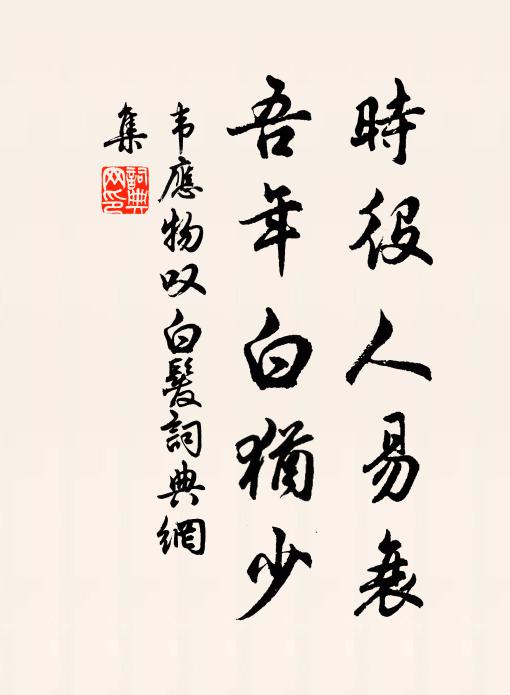 時役人易衰
吾年白猶少
韦應物叹白髮詞典網
集
詞典
网印